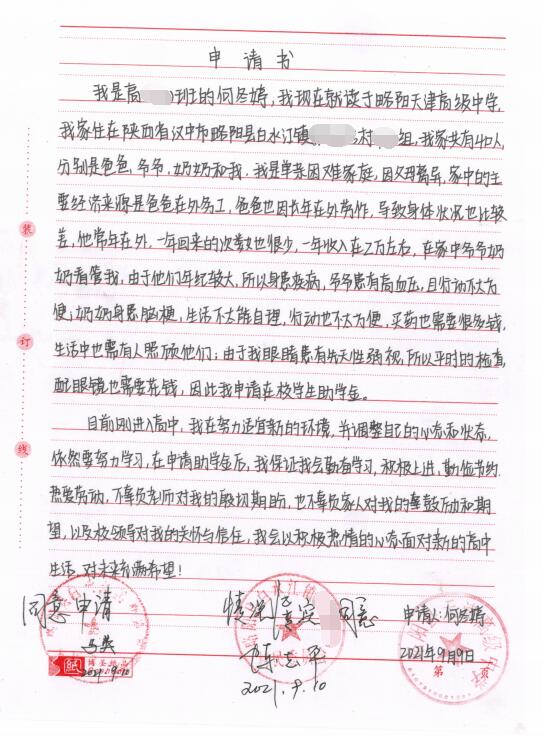 申请书
我是高 班的何冬婷，我现在就读于略阳天津高级中学，
我家住在陕西省汉中市略阳县白水江镇 村 组，我家共有4口人，
分别是爸爸，爷爷，奶奶和我，我是单亲困难家庭，因父母离异，家中的主
要经济来源是爸爸在外务工，爸爸也因长年在外劳作，导致身体状况也比较
差，他常年在外，一年回来的次数也很少，一年收入在2万左右，在家中爷爷奶
奶看管我，由于他们年纪较大，所以身患疾病，爷爷患有高血压，且行动不太方
便，奶奶身患脑梗，生活不太能自理，行动也不太方便，买药也需要很多钱，
生活中也需有人照顾他们；由于我眼睛患有先天性弱视，所以平时的检查，
配眼镜也需要花钱，因此我申请在校学生助学金。
目前刚进入高中，我在努力适宜新的环境，并调整自己的心态和状态，
依然要努力学习，在申请助学金后，我保证我会勤奋学习，积极上进，勤俭节约
热爱劳动，不辜负老师对我的殷切期盼，也不辜负家人对我的鼓励和期
望，以及校领导对我的关怀与信任，我会以积极热情的心态面对新的高中
生活，对未来充满希望！
同意申请
情况属实 同意
申请人：何冬婷
2021年9月9日
2021.9.10
2021.9.10
装
订
线
第 页